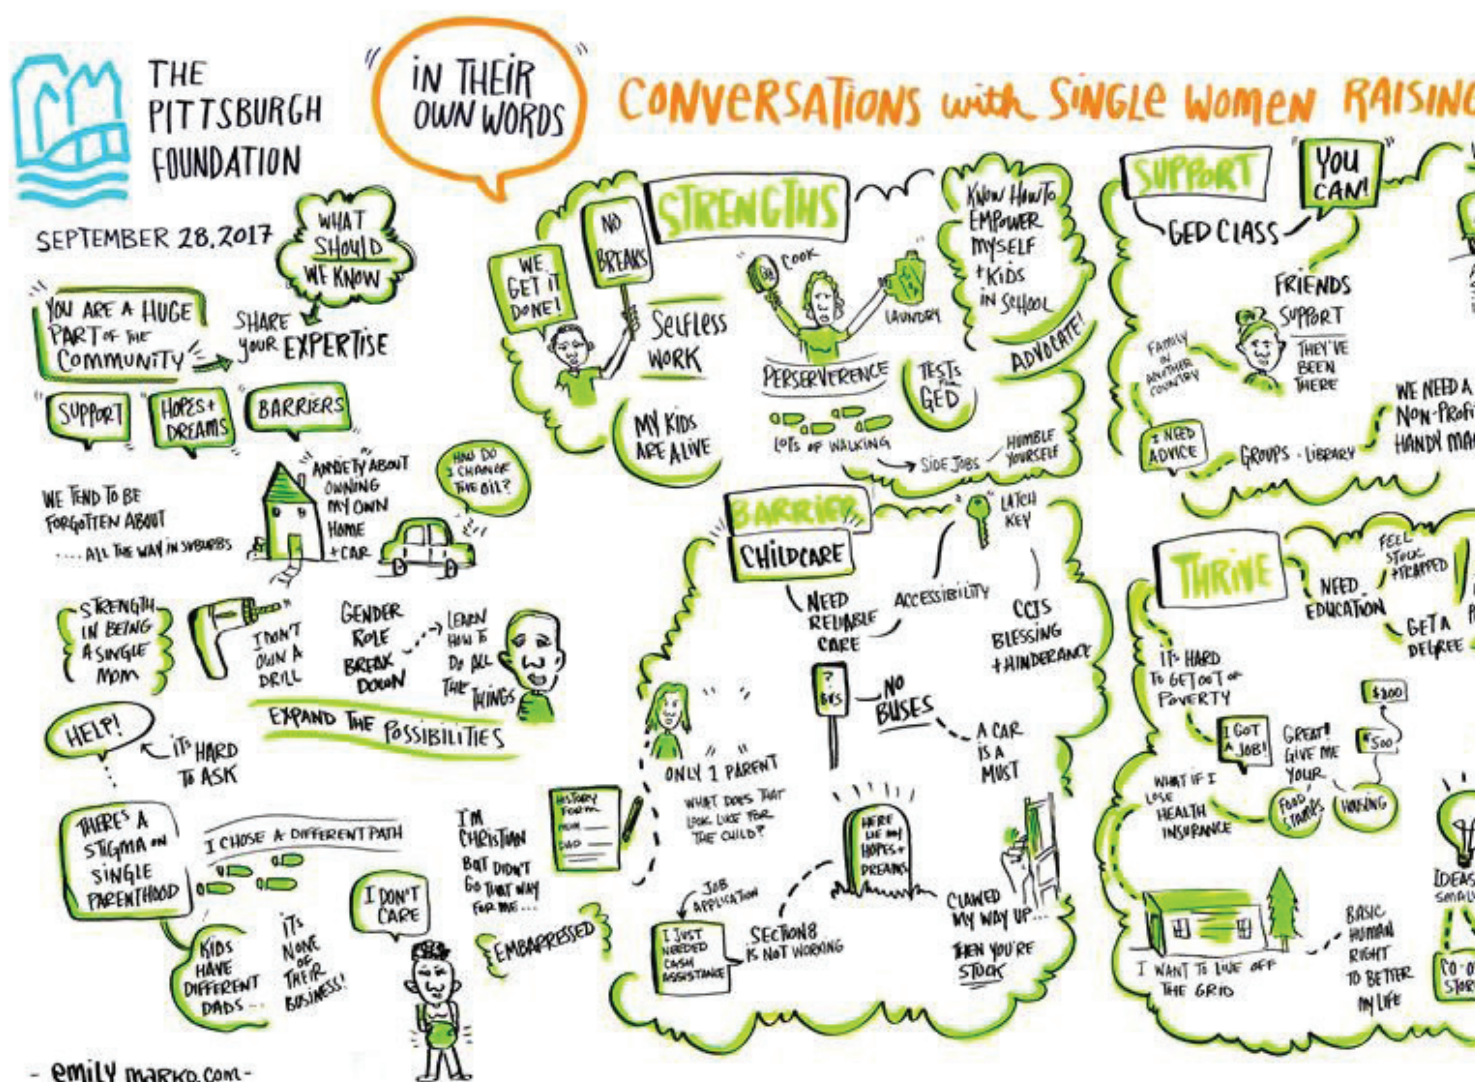 THE
PITTSBURGH
FOUNDATION
"IN THEIR
OWN WORDS"
CONVERSATIONS with SINGLE WOMEN RAISING
SEPTEMBER 28, 2017
WHAT
SHOULD
WE KNOW
"YOU ARE A HUGE
PART OF THE
COMMUNITY"
SHARE
YOUR EXPERTISE
SUPPORT
HOPES +
DREAMS
BARRIERS
WE TEND TO BE
FORGOTTEN ABOUT
.... ALL THE WAY IN SUBURBS
ANXIETY ABOUT
OWNING
MY OWN
HOME
+ CAR
HOW DO
I CHANGE
THE OIL?
STRENGTH
IN BEING
A SINGLE
MOM
I DON'T
OWN A
DRILL
GENDER
ROLE
BREAK
DOWN
LEARN
HOW TO
DO ALL
THE
THINGS
EXPAND THE POSSIBILITIES
HELP!
IT'S HARD
TO ASK
THERE'S A
STIGMA ON
SINGLE
PARENTHOOD
I CHOSE A DIFFERENT PATH
KIDS
HAVE
DIFFERENT
DADS...
IT'S
NONE
OF
THEIR
BUSINESS!
I DON'T
CARE
I'M
CHRISTIAN
BUT DIDN'T
GO THAT WAY
FOR ME...
EMBARRESSED
- emily marko.com -
STRENGTHS
NO
BREAKS
WE
GET IT
DONE!
SELFLESS
WORK
MY KIDS
ARE ALIVE
COOK
LAUNDRY
PERSERVERENCE
LOTS OF WALKING
SIDE JOBS
HUMBLE
YOURSELF
TESTS
GED
KNOW HOW TO
EMPOWER
MYSELF
+ KIDS
IN SCHOOL
ADVOCATE!
BARRIER
CHILDCARE
NEED
RELIABLE
CARE
ACCESSIBILITY
"LATCH
KEY"
CCIS
BLESSING
+ HINDERANCE
?
BUS
NO
BUSES
A CAR
IS A
MUST
ONLY 1 PARENT
WHAT DOES THAT
LOOK LIKE FOR
THE CHILD?
HISTORY
FORM
MOM
DAD
JOB
APPLICATION
I JUST
NEEDED
CASH
ASSISTANCE
SECTION 8
IS NOT WORKING
HERE
LIE MY
HOPES +
DREAMS
CLAWED
MY WAY UP...
THEN YOU'RE
STUCK
SUPPORT
"YOU
CAN!"
GED CLASS
FRIENDS
SUPPORT
THEY'VE
BEEN
THERE
FAMILY
IN
ANOTHER
COUNTRY
I NEED
ADVICE
GROUPS · LIBRARY
WE NEED A
NON-PROFI
HANDY MA
THRIVE
NEED
EDUCATION
FEEL
STUCK
+ TRAPPED
GET A
DEGREE
IT'S HARD
TO GET OUT OF
POVERTY
I GOT
A JOB!
GREAT!
GIVE ME
YOUR
FOOD
STAMPS
HOUSING
$500
$800
WHAT IF I
LOSE
HEALTH
INSURANCE
I WANT TO LIVE OFF
THE GRID
BASIC
HUMAN
RIGHT
TO BETTER
MY LIFE
IDEAS
SMALL
CO-O
STOR